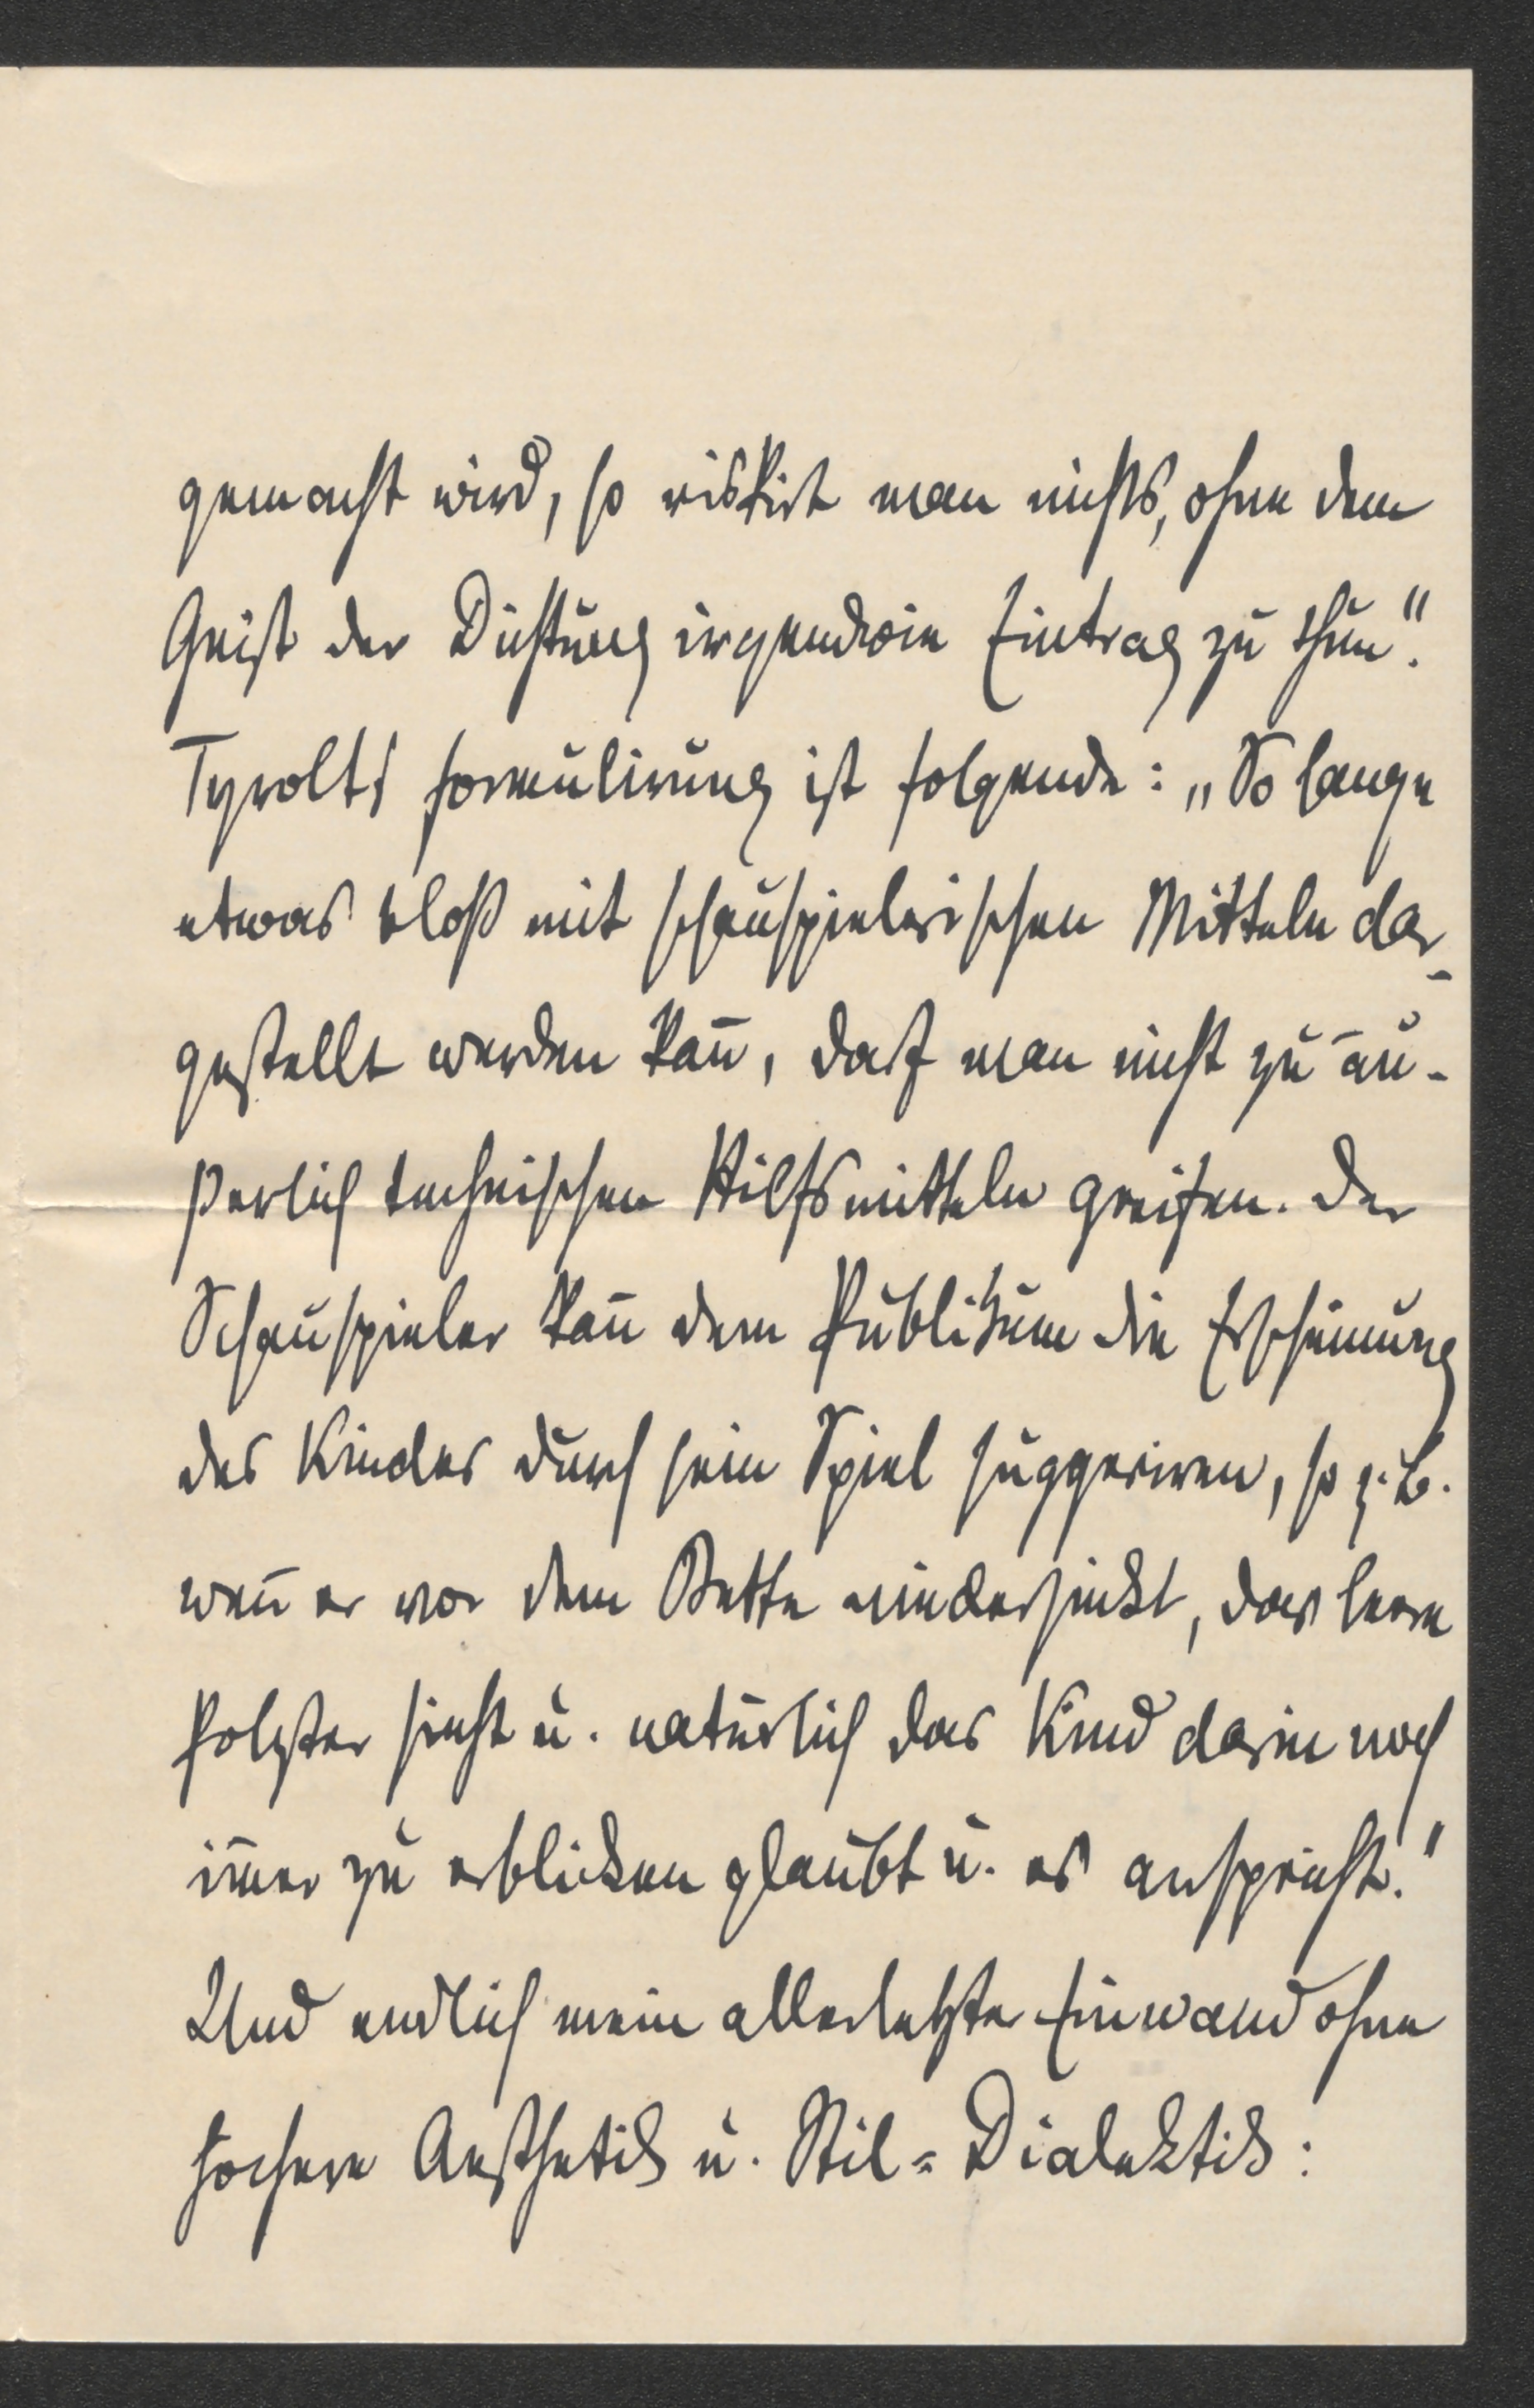 gemacht wird, so riskirt man nichts, ohne dem
Geist der Dichtung irgendwie Eintrag zu thun".
Tyrolts Formulirung ist folgende: „So lange
etwas bloß mit schauspielerischen Mitteln dar-
gestellt werden kan̄, darf man nicht zu äu-
ßerlich technischen Hilfsmitteln greifen. Der
Schauspieler kan̄ dem Publikum die Erscheinung
des Kindes durch sein Spiel suggeriren, so z. B.
wen̄ er vor dem Bette niedersinkt, das leere
Polster sieht u. natürlich das Kind darin noch
im̄er zu erblicken glaubt u. es anspricht."
Und endlich mein allerletzter Einwand ohne
hoehere Aesthetik u. Stil-Dialektik: